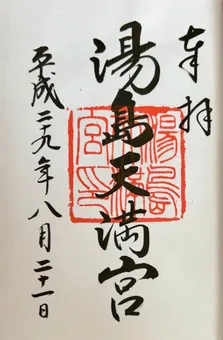 奉拝
湯島天満宮
平成二十九年八月二十一日